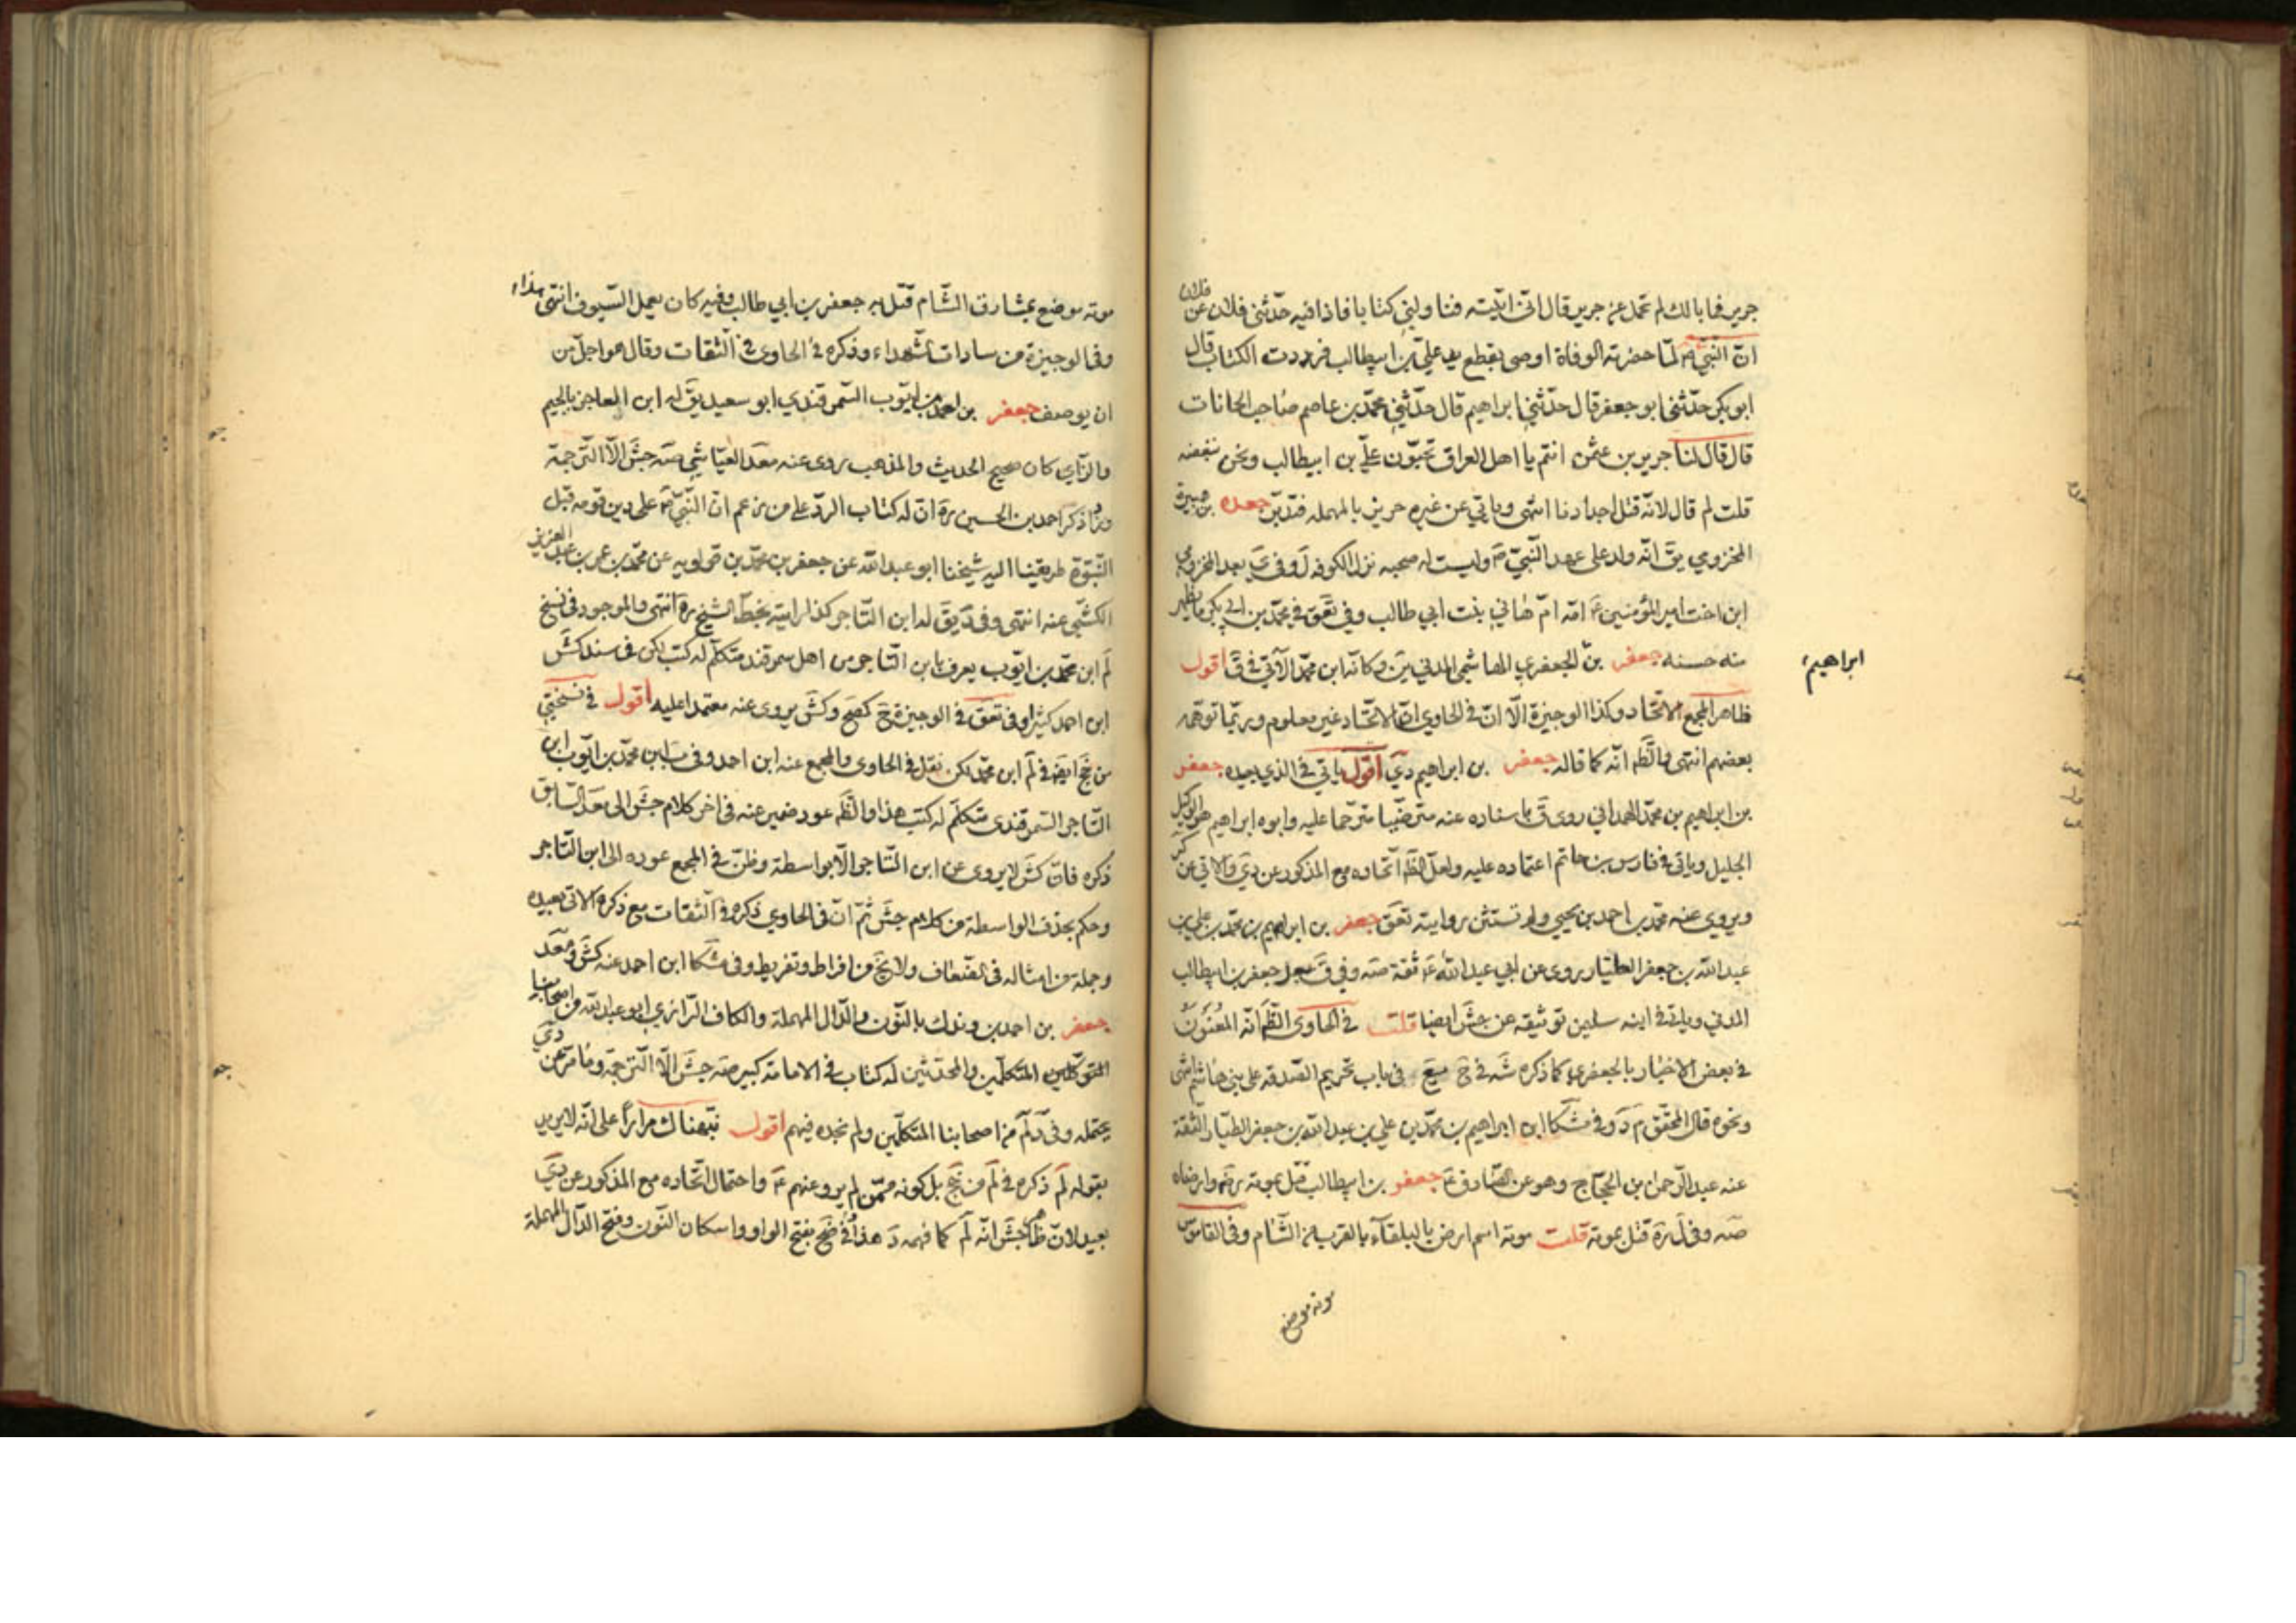 جرير فما بالك لم تحمل عن جرير قال انى اتيته فناولني كتابا فاذا فيه حدثني فلان عن فلان
ان النبي ص لما حضرته الوفاة اوصى بقطع يد علي بن ابيطالب فرددت الكتاب قال
ابو بكر حدثني ابو جعفر قال حدثني ابراهيم قال حدثني محمد بن عاصم صاحب الخانات
قال قال لنا جرير بن عثمن انتم يا اهل العراق تحبون علي بن ابيطالب ونحن نبغضه
قلت لم قال لانه قتل اجدادنا انتهى وياتي عن غيره حريز بالمهملة فتدبر جعده بن هبيرة
المخزومي يق انه ولد على عهد النبي ص وليست له صحبه نزل الكوفه ل وفى ى بعد المخزومي
ابن اخت امير المؤمنين ع امه ام هاني بنت ابي طالب وفي تعق في محمد بن ابي بكر ما يظهر
منه حسنه جعفر بن الجعفري الهاشمي المدني ين وكانه ابن محمد الآتي في ق اقول
ابراهيم
ظاهر المجمع الاتحاد وكذا الوجيزة الا ان في الحاوي ان الاتحاد غير معلوم وربما توهمه
بعضهم انتهى والظ انه كما قاله جعفر بن ابراهيم دي اقول ياتي في الذي بعيده جعفر
بن ابراهيم بن محمد الهمداني روى ق باسناده عنه مترضيا مترحما عليه وابوه ابراهيم هو الوكيل
الجليل وياتي في فارس بن حاتم اعتماده عليه ولعل الظ اتحاده مع المذكور عن دي والاتي عن كر
ويروي عنه محمد بن احمد بن يحيي ولم تستثن روايته تعق جعفر بن ابراهيم بن محمد بن علي بن
عبد الله بن جعفر الطيار روى عن ابي عبد الله ع ثقة صه وفي ق بعد جعفر بن ابيطالب
المدني وياتي في ابنه سليمن توثيقه عن جش ايضا قلت في الحاوي الظ انه المعنون
في بعض الاخبار بالجعفري كما ذكره شه في ح يع في باب تحريم الصدقه على بني هاشم انتهى
ونحوه قال المحقق م د وفي مشكا ابن ابراهيم بن محمد بن علي بن عبد الله بن جعفر الطيار الثقة
عنه عبد الرحمن بن الحجاج وهو عن الصادق ع جعفر بن ابيطالب قتل بموته رضه وارضاه
صه وفى ل ره قتل بموته قلت موته اسم ارض بالبلقاء بالقرب من الشام وفى القاموس
موته موضع
موته موضع بمشارق الشام قتل به جعفر بن ابي طالب وفيه كان يعمل السيوف انتهى هذا
وفي الوجيزة من سادات الشهداء وذكره في الحاوى في الثقات وقال هو اجل من
ان يوصف جعفر بن احمد بن ايوب السمرقندي ابو سعيد يق له ابن العاجز بالجيم
والزاي كان صحيح الحديث والمذهب روى عنه محمد العياشي صه جش الا الترجمة
وزاد ذكر احمد بن الحسين ره ان له كتاب الرد على من زعم ان النبي ص على دين قومه قبل
النبوة طريقنا اليه شيخنا ابو عبد الله عن جعفر بن محمد بن قولويه عن محمد بن عمر بن عبد العزيز
الكشي عنه انتهى وفى د يق له ابن التاجر كذا رايته بخط الشيخ ره انتهى والموجود فى نسخ
لم ابن محمد بن ايوب يعرف بابن التاجر من اهل سمرقند متكلم له كتب لكن فى سند كش
ابن احمد كثيرا وفى تعق في الوجيزة ح كصح وكش يروى عنه معتمدا عليه اقول في نسختي
من جخ ايضا في لم ابن محمد لكن نقل في الحاوى والمجمع عنه ابن احمد وفى ب ابن محمد بن ايوب ابن
التاجر السمرقندى متكلم له كتب هذا والظ عود ضمير عنه فى اخر كلام جش الى محمد السابق
ذكره فان كش لا يروى عن ابن التاجر الا بواسطة وظن في المجمع عوده الى ابن التاجر
وحكم بحذف الواسطة من كلام جش ثم ان في الحاوي ذكره في الثقات مع ذكره الاتى بعيده
وجملة من امثاله فى الضعاف ولا يخ من افراط وتفريط وفى مشكا ابن احمد عنه كش ومحمد
جعفر بن احمد بن وندك بالنون والدال المهملة والكاف الرازي ابو عبد الله من اصحابنا
المتكلمين والمحدثين له كتاب في الامامة كبير صه جش الا الترجمة وما مر عن دي
يحتمله وفى د لم من اصحابنا المتكلمين ولم نجده فيهم اقول نبهناك مرارا على انه لا يريد
بقوله لم ذكره في لم من جخ بل كونه ممن لم يرو عنهم ع واحتمال اتحاده مع المذكور عن دي
بعيد لان ظ جش انه لم كما فهمه د هذا وفى ضح بفتح الواو واسكان النون وفتح الدال المهملة